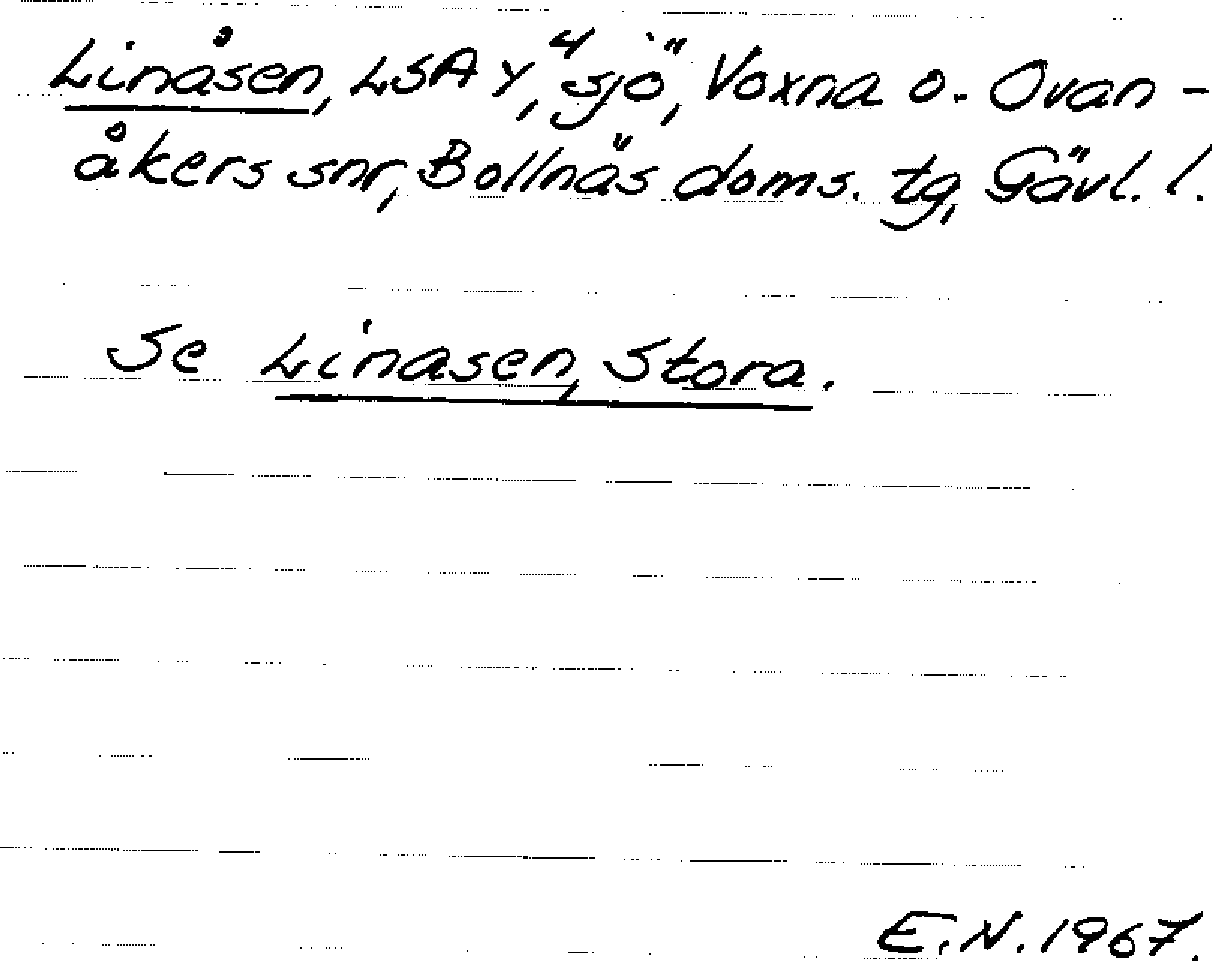 Linåsen, LSA Y, "sjö", Voxna o. Ovan-
åkers snr, Bollnäs doms. tg, Gävl. l.
Se Linasen, Stora.
E.N. 1967.